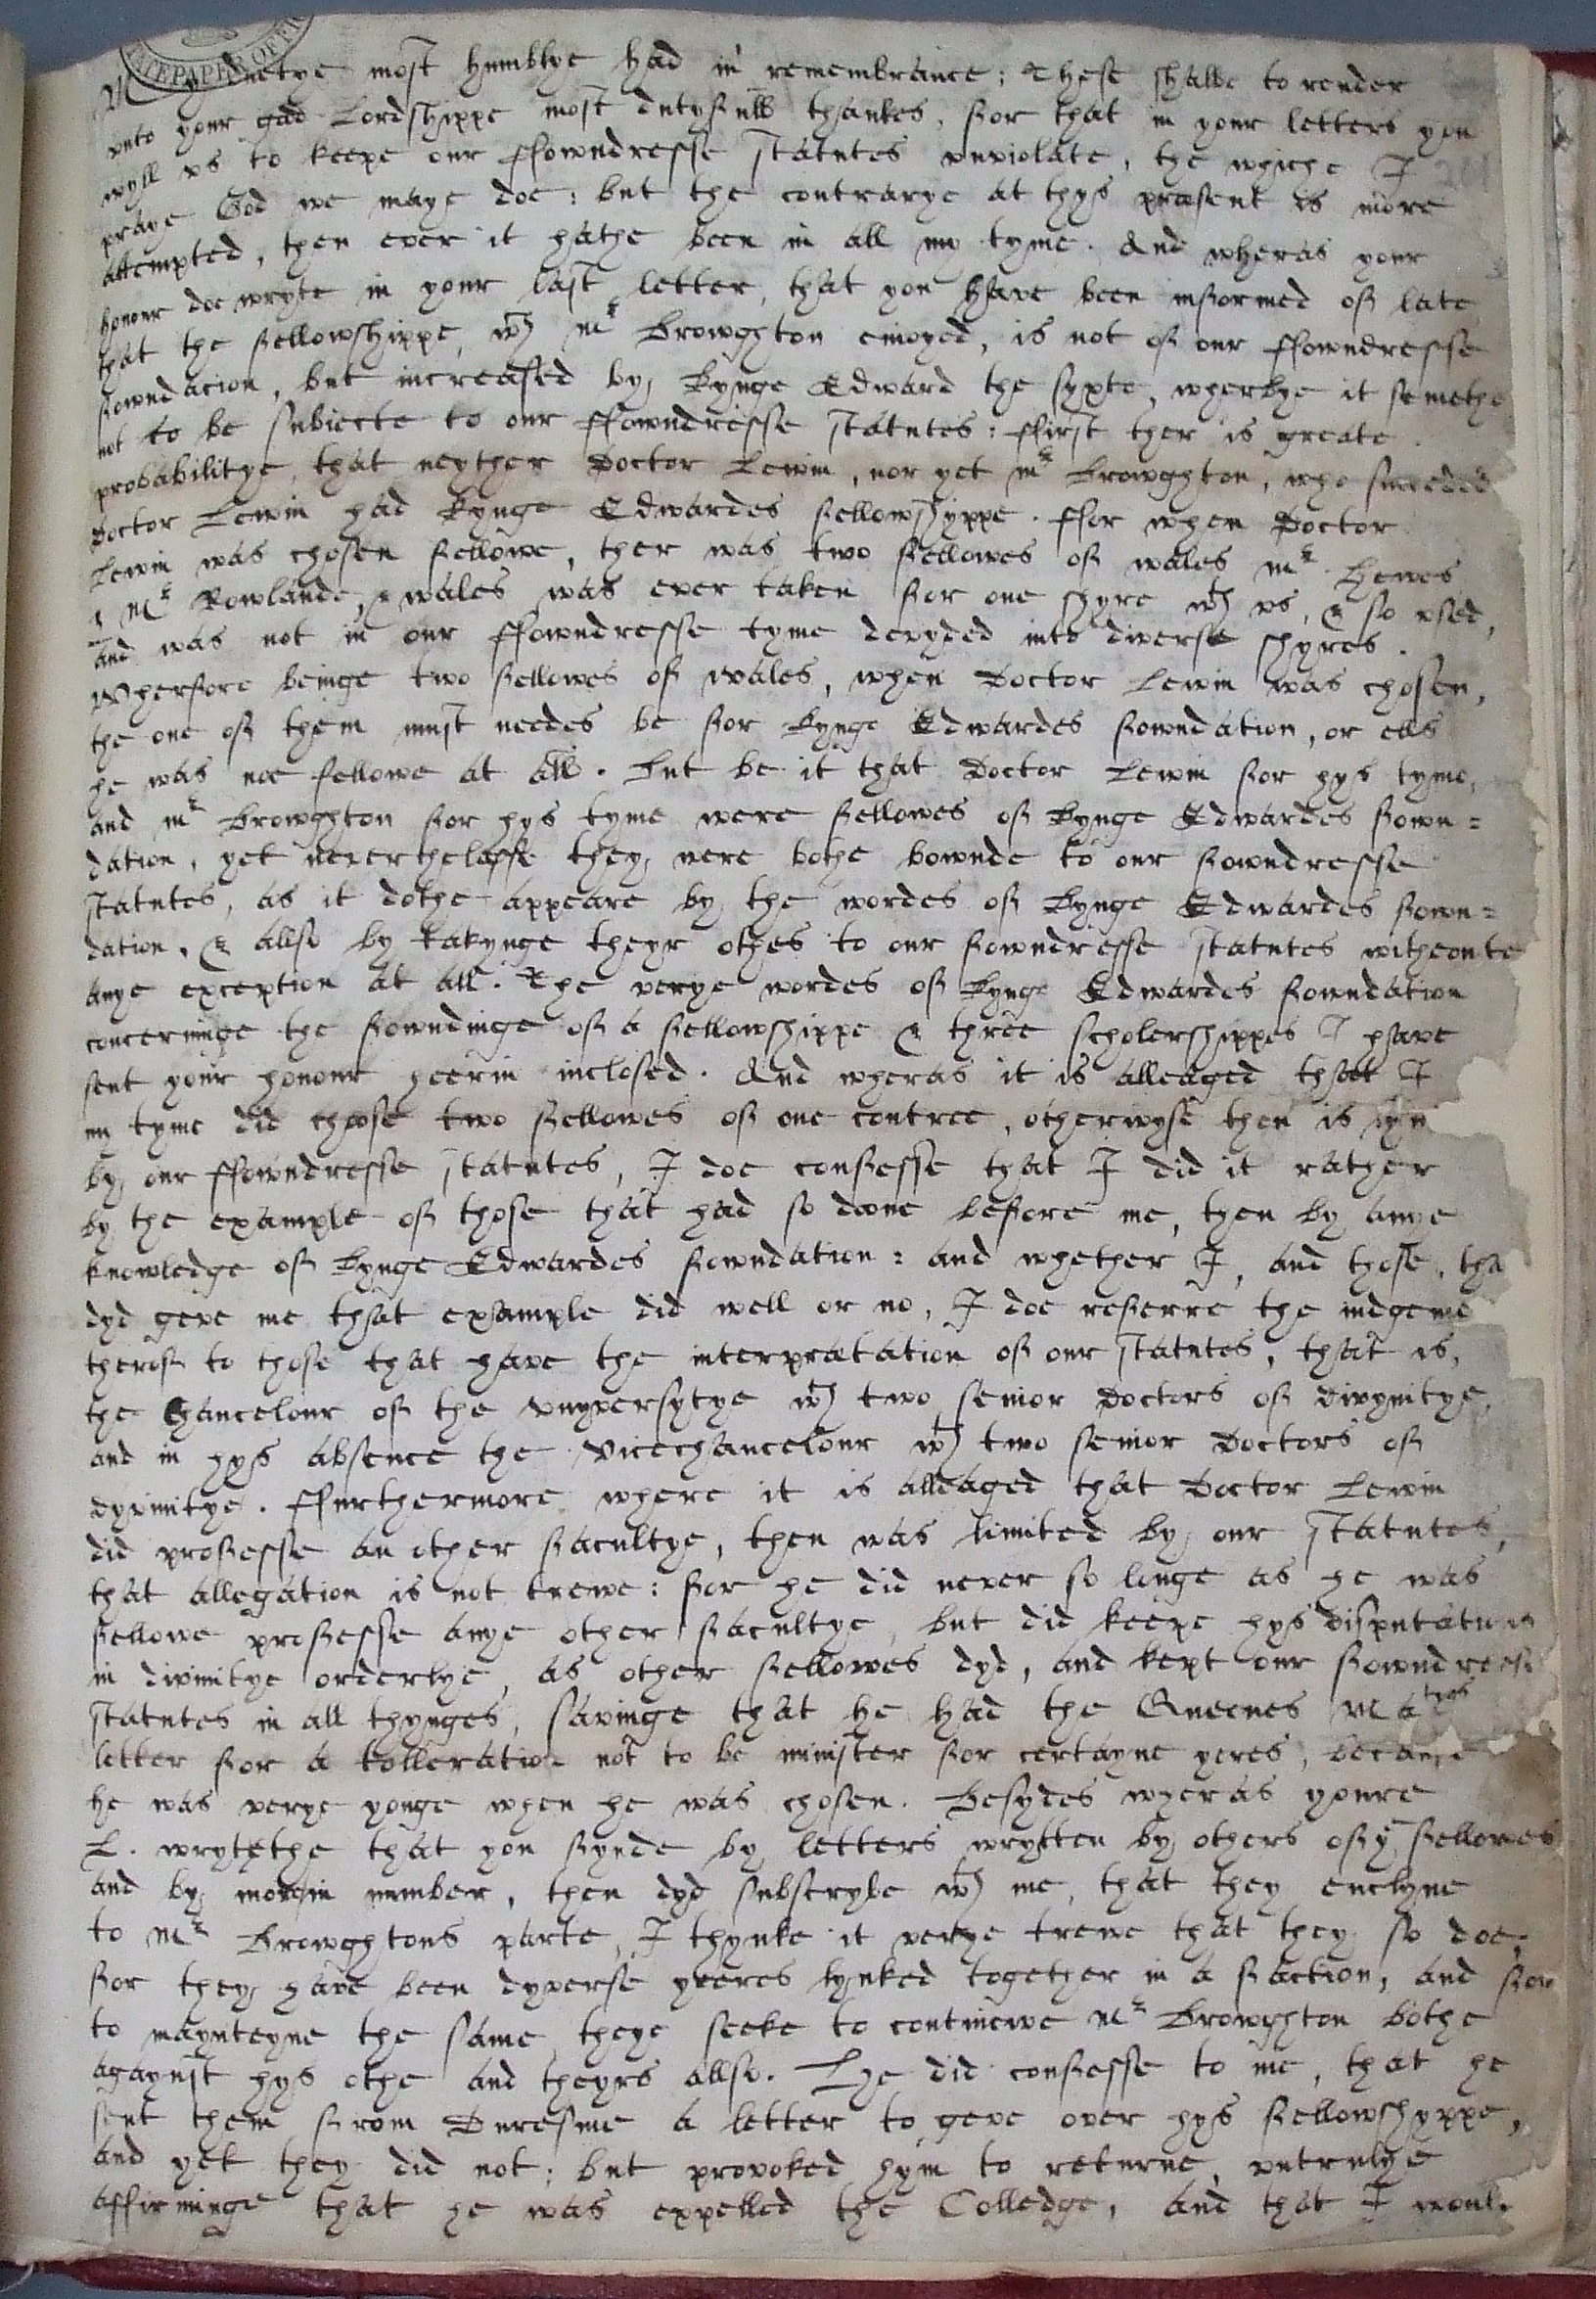 My duetye most humblye had in remembrance: These shalbe to render
unto your good Lordshippe most dutyfull thankes, for that in your letters you
wyll us to keepe our ffowndresse statutes unviolate, the whiche I
praye God we maye doe: but the contrarye at thys præsent is more
attempted, then ever it hathe been in all my tyme. And wheras your
honour doe wryte in your last letter, that you have been informed of late
that the fellowshippe, wch Mr Browghton enioyed, is not of our ffowndresse
fowndacion, but increased by Kynge Edward the syxte, wherbye it semethe
not to be subiecte to our ffowndresse statutes: ffirst ther is greate
probabilitye, that neyther Doctor Lewin, nor yet Mr Browghton, who succeeded
Doctor Lewin had Kynge Edwardes fellowshyppe. ffor when Doctor
Lewin was chosen fellowe, ther was two fellowes of wales Mr Hewes
& Mr Rowlande, & wales was ever taken for one shyre wth us, & so used,
and was not in our ffowndresse tyme devyded into diverse shyres.
Wherfore beinge two fellowes of wales, when Doctor Lewin was chosen,
the one of them must needes be for Kynge Edwardes fowndation, or ells
he was noe fellowe at all. But be it that Doctor Lewin for hys tyme,
and Mr Browghton for hys tyme were fellowes of Kynge Edwardes fown=
dation, yet neverthelesse they were bothe bownde to our fowndresse
statutes, as it dothe appeare by the wordes of Kynge Edwardes fown=
dation, & allso by takynge theyr othes to our fowndresse statutes witheoute
anye exception at all. The verye wordes of Kynge Edwardes fowndation
concerninge the fowndinge of a fellowshippe & three scholershippes I have
sent your honour heerin inclosed. And wheras it is alleaged that I
my tyme did choose two fellowes of one contree, otherwyse then is
by our ffowndresse statutes, I doe confesse that I did it rather
by the example of those that had so doone before me, then by anye
knowledge of Kynge Edwardes fowndation: and whether I, and those, tha
dyd geve me that example did well or no, I doe referre the iudgeme
therof to those that have the interprætation of our statutes, that is,
the Chancelour of the Unyversytye wth two senior Doctors of divynitye,
and in hys absence the Vicechancelour wth two senior Doctors of
dyvinitye. Ffurthermore where it is alleaged that Doctor Lewin
did professe an other facultye, then was limited by our statutes,
that allegation is not trewe: for he did never so longe as he was
fellowe professe anye other facultye, but did keepe hys disputations
in divinitye orderlye, as other fellowes dyd, and kept our fowndresse
statutes in all thynges, savinge that he had the Queenes Maties
letter for a tolleration not to be minister for certayne yeres, because
he was verye yonge when he was chosen. Besydes wheras youre
L. wrytethe that you fynde by letters wrytten by others of ye fellowes
and by moe in number, then dyd subscrybe wth me, that they enclyne
to Mr Browghtons parte, I thynke it verye trewe that they so doe;
for they have been dyverse yeeres lynked together in a faction, and for
to maynteyne the same theye seeke to continewe Mr Browghton bothe
agaynst hys othe and theyrs allso. He did confesse to me, that he
sent them from Duresme a letter to geve over hys fellowshyppe,
and yet they did not; but provoked hym to returne, untrulye
affirminge that he was expelled the Colledge, and that I woul